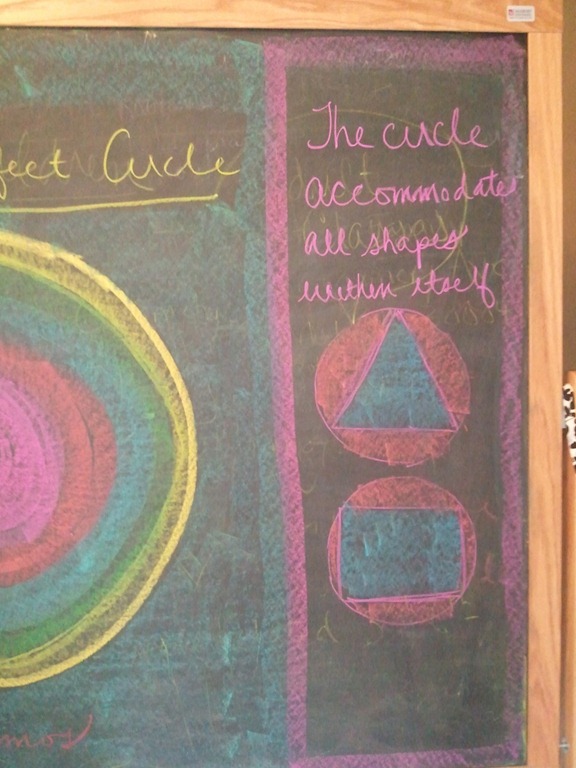 fect Circle
The circle
accommodates
all shapes
within itself